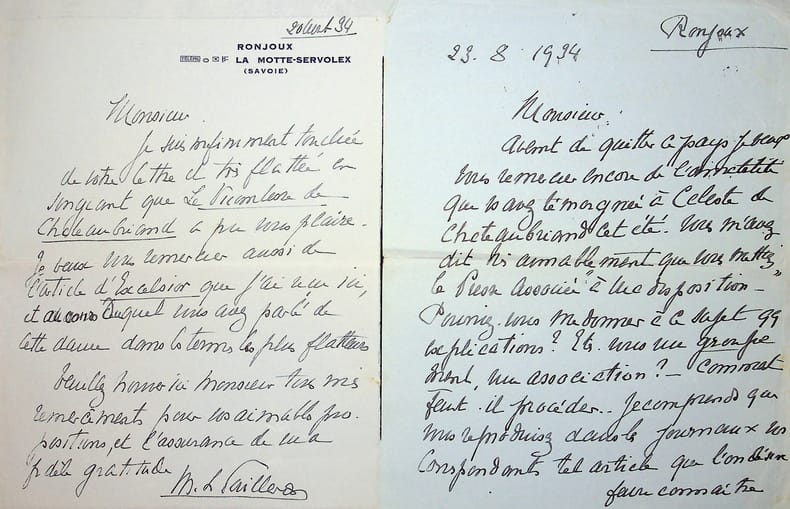 20 août 34
RONJOUX
TÉLÉPH LA MOTTE-SERVOLEX
(SAVOIE)
Monsieur
Je suis infiniment touchée
de votre lettre et très flattée en
songeant que La Vicomtesse de
Chateaubriand a pu vous plaire.
Je veux vous remercier aussi de
l'article d'Excelsior que j'ai reçu ici,
et au cours duquel vous avez parlé de
cette dame dans les termes les plus flatteurs
Veuillez trouver ici Monsieur tous mes
remerciements pour vos aimables pro-
positions, et l'assurance de ma
fidèle gratitude
M. L. Pailleron
Ronjoux
23. 8. 1934
Monsieur.
Avant de quitter ce pays je veux
vous remercier encore de l'
que vs avez témoignée à Celeste de
Chateaubriand cet été. Vous m'avez
dit très aimablement que vous mettiez
la Presse Associée "à ma disposition"-
Pourriez-vous me donner à ce sujet qq
explications? Êtes-vous un groupe
ment, une association? - Comment
faut-il procéder.. Je comprends que
vous reproduisez dans les journaux vos
correspondants tel article que l'on désire
faire connaître